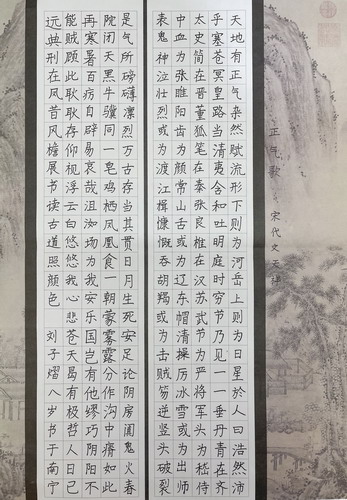 正气歌 宋代文天祥
天地有正气杂然赋流形下则为河岳上则为日星於人曰浩然沛
乎塞苍冥皇路当清夷含和吐明庭时穷节乃见一一垂丹青在齐
太史简在晋董狐笔在秦张良椎在汉苏武节为严将军头为嵇侍
中血为张睢阳齿为颜常山舌或为辽东帽清操厉冰雪或为出师
表鬼神泣壮烈或为渡江楫慷慨吞胡羯或为击贼笏逆竖头破裂
是气所磅礴凛烈万古存当其贯日月生死安足论阴房阒鬼火春
院闭天黑牛骥同一皂鸡栖凤凰食一朝蒙雾露分作沟中瘠如此
再寒暑百疠自辟易哀哉沮洳场为我安乐国岂有他缪巧阴阳不
能贼顾此耿耿存仰视浮云白悠悠我心悲苍天曷有极哲人日已
远典刑在夙昔风檐展书读古道照颜色 刘子熠八岁书于南宁